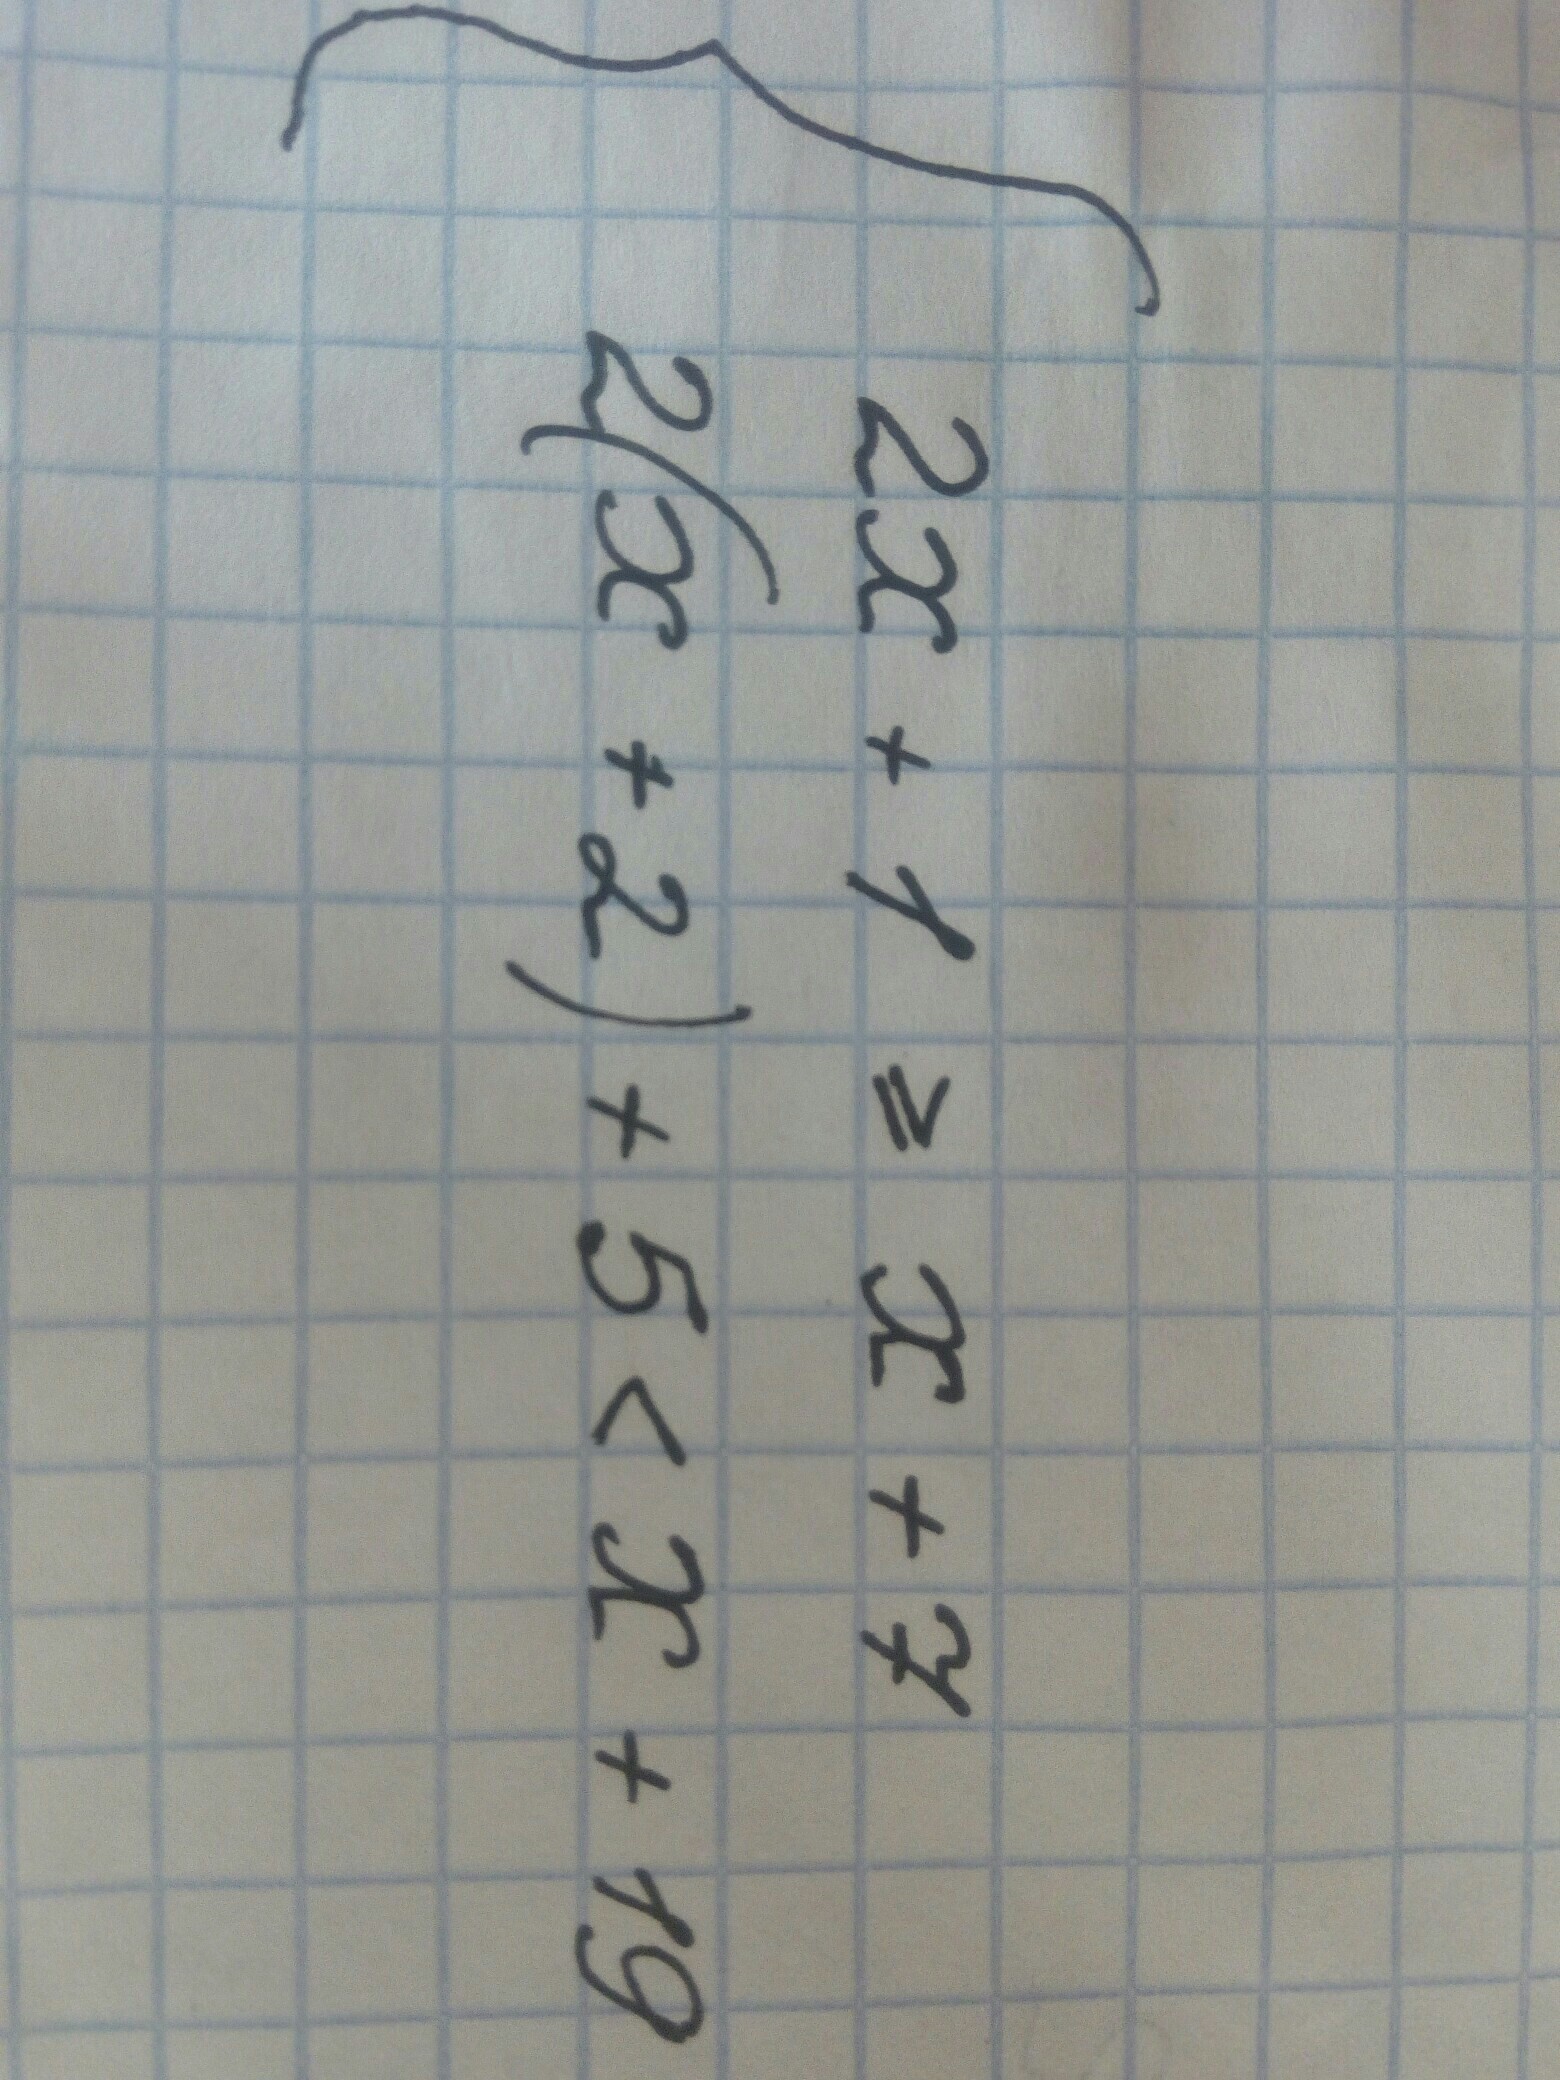 2x + 1 ⩾ x + 7
2(x + 2) + 5 < x + 19